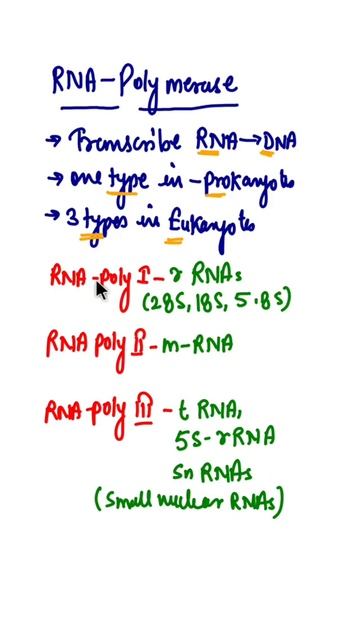 RNA-Polymerase
→ Transcribe RNA→DNA
→ one type in - Prokaryote
→ 3 types in Eukaryote
RNA-poly I - r RNAs
(28S, 18S, 5.8S)
RNA poly II - m-RNA
RNA-poly III - t RNA,
5S-rRNA
Sn RNAs
(Small nuclear RNAs)